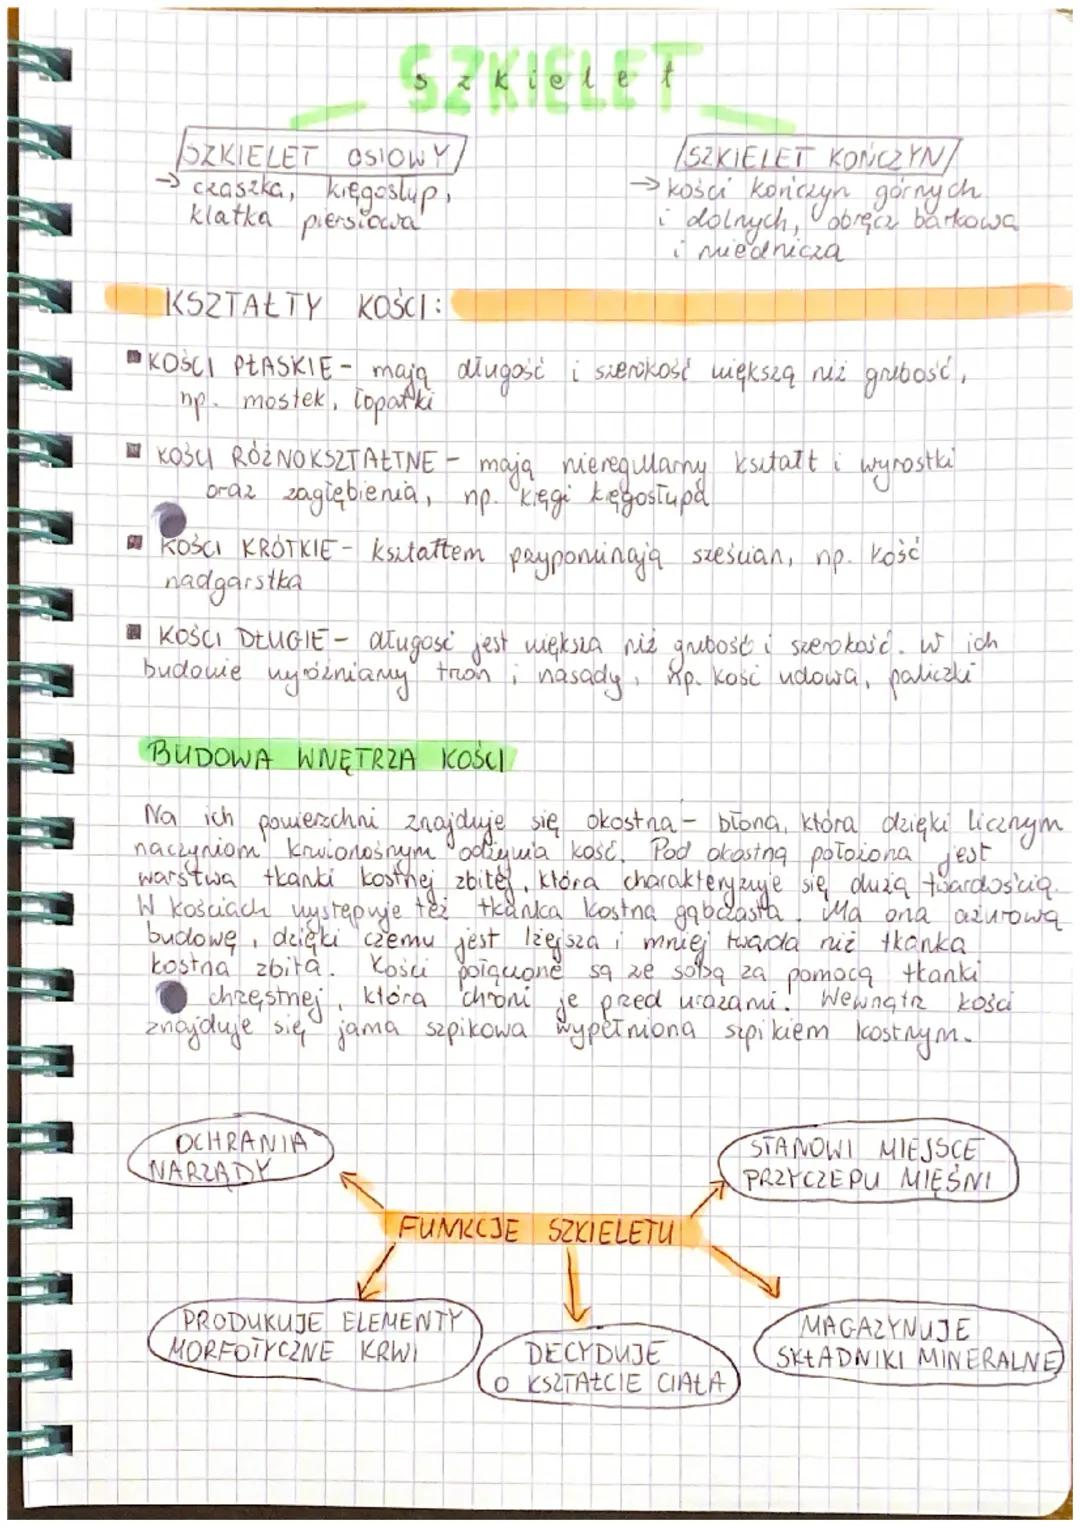 SZKIELET
szkielet
SZKIELET OSIOWY
→ czaszka, kręgosłup,
klatka piersiowa
SZKIELET KOŃCZYN
→ kości kończyn górnych
i dolnych, obręcz barkowa
i miednicza
KSZTAŁTY KOŚCI:
▪ KOŚCI PŁASKIE - mają długość i szerokość większą niż grubość,
np. mostek, łopatki
▪ KOŚCI RÓŻNOKSZTAŁTNE - mają nieregularny kształt i wyrostki
oraz zagłębienia, np. kręgi kręgosłupa
▪ KOŚCI KRÓTKIE - kształtem przypominają sześcian, np. kość
nadgarstka
▪ KOŚCI DŁUGIE - długość jest większa niż grubość i szerokość. W ich
budowie wyróżniamy trzon i nasady, np. kość udowa, paliczki
BUDOWA WNĘTRZA KOŚCI
Na ich powierzchni znajduje się okostna - błona, która dzięki licznym
naczyniom krwionośnym odżywia kość. Pod okostną położona jest
warstwa tkanki kostnej zbitej, która charakteryzuje się dużą twardością.
W kościach występuje też tkanka kostna gąbczasta. Ma ona ażurową
budowę, dzięki czemu jest lżejsza i mniej twarda niż tkanka
kostna zbita. Kości połączone są ze sobą za pomocą tkanki
chrzęstnej, która chroni je przed urazami. Wewnątrz kości
znajduje się jama szpikowa wypełniona szpikiem kostnym.
OCHRANIA
NARZĄDY
STANOWI MIEJSCE
PRZYCZEPU MIĘŚNI
FUNKCJE SZKIELETU
PRODUKUJE ELEMENTY
MORFOTYCZNE KRWI
DECYDUJE
O KSZTAŁCIE CIAŁA
MAGAZYNUJE
SKŁADNIKI MINERALNE